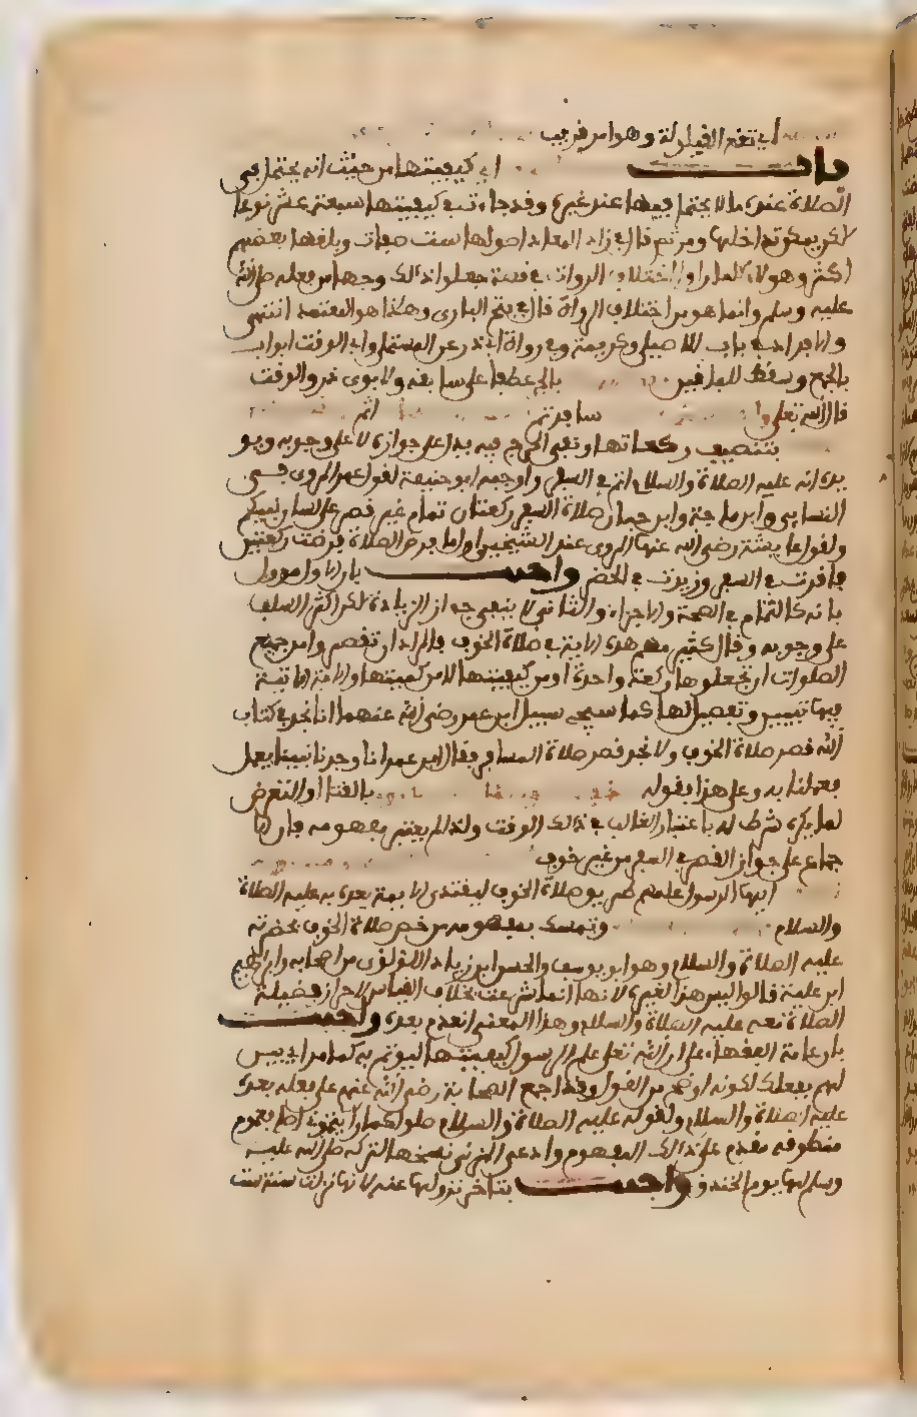 اي تقع القيلولة وهو امر قريب
باب اي كيفيتها من حيث انه يحتمل في
الصلاة عنده ما لا يحتمل فيها عند غيره وقد جاءت في كيفيتها سبعة عشر نوعا
لكن يمكن تداخلها ومن ثم قال في زاد المعاد اصولها ست صفات وبلغها بعضهم
اكثر وهولاء كلما راوا اختلاف الرواة في قصة جعلوا ذلك وجها من فعله صلى الله
عليه وسلم وانما هو من اختلاف الرواة قال في فتح الباري وهذا هو المعتمد انتهى
والافراد في باب للاصيلي وكريمة وفي رواة ابي ذر عن المستملي وابي الوقت ابواب
بالجمع وسقط للباقين بالجر عطفا على سابقه ولابوي ذر والوقت
قال الله تعلى وا سافرتم اثم
بتنصيف ركعاتها ونفي الحرج فيه يدل على جوازه لا على وجوبه ويو
يده انه عليه الصلاة والسلام اتم في السفر واوجبه ابو حنيفة لقول عمر المروي في
النسايي وابن ماجة وابن حبان صلاة السفر ركعتان تمام غير قصر على لسان نبيكم
ولقول عايشة رضي الله عنها المروي عند الشيخين اول ما فرض الصلاة فرضت ركعتين
فاقرت في السفر وزيدت في الحضر واجيب بان الاول مؤول
بانه كالتمام في الصحة والاجزاء والثاني لا ينفي جواز الزيادة لكن اكثر السلف
على وجوبه وقال كثير منهم هذه الاية في صلاة الخوف فالمراد ان تقصروا من جميع
الصلوات ان تجعلوها ركعة واحدة او من كيفيتها لا من كميتها والاية الاتية
فيها تبيين وتفصيل لها كما سيجيء سيل ابن عمر رضي الله عنهما انا نجد في كتاب
الله قصر صلاة الخوف ولا نجد قصر صلاة المسافر فقال ابن عمر انا وجدنا نبينا يعمل
فعملنا به وعلى هذا فقوله بالقتال او التعرض
لما يكره شرط له باعتبار الغالب في ذلك الوقت ولذا لم يعتبر مفهومه فان الا
جماع على جواز القصر في السفر من غير خوف
ايها الرسول علمهم طريق صلاة الخوف ليقتدي الايمة بعده به عليه الصلاة
والسلام وتمسك بمفهومه من خص صلاة الخوف بحضرته
عليه الصلاة والسلام وهو ابو يوسف والحسن ابن زياد اللؤلؤي من اصحابه وابراهيم
ابن علية قالوا ليس هذا لغيره لانها انما شرعت بخلاف القياس لاحراز فضيلة
الصلاة معه عليه الصلاة والسلام وهذا المعنى انعدم بعده واجيب
بان عامة الفقهاء على ان الله تعلى علم الرسول كيفيتها ليؤتم به كما مر اي بين
لهم بفعلك لكونه اوضح من القول وقد اجمع الصحابة رضي الله عنهم على فعله بعده
عليه الصلاة والسلام ولقوله عليه الصلاة والسلام صلوا كما رايتموني اصلي فعموم
منطوقه مقدم على ذلك المفهوم وادعى المزني نسخها لتركه صلى الله عليه
وسلم لها يوم الخندق واجيب بتاخر نزولها عنه لانها نزلت سنة ست